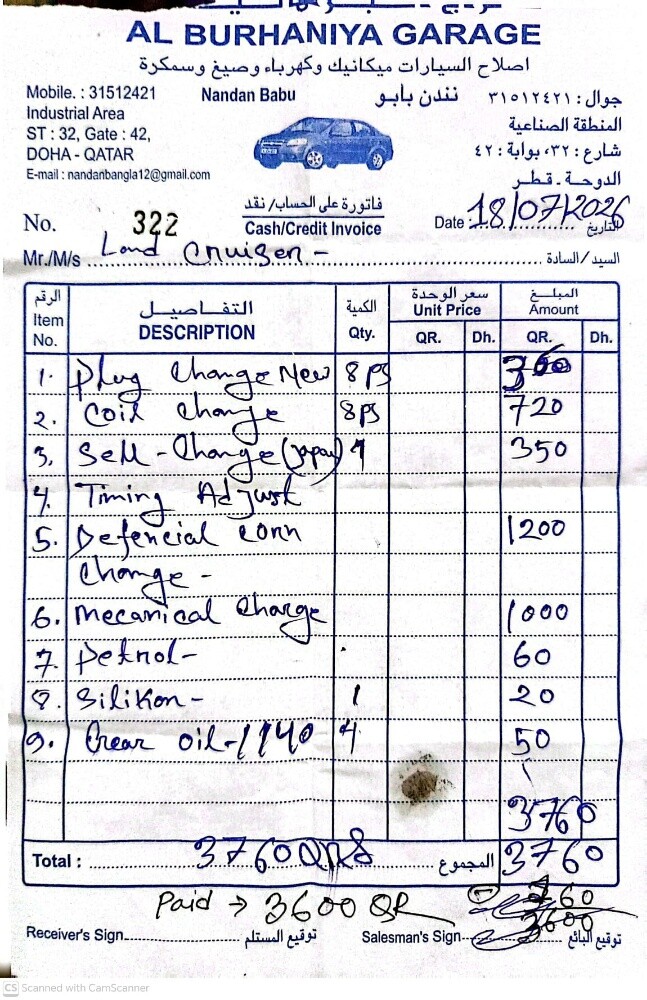 AL BURHANIYA GARAGE
اصلاح السيارات ميكانيك وكهرباء وصبغ وسمكرة
Mobile. : 31512421 Nandan Babu نندن بابو جوال : ٣١٥١٢٤٢١
Industrial Area المنطقة الصناعية
ST : 32, Gate : 42, شارع : ٣٢، بوابة : ٤٢
DOHA - QATAR الدوحة - قطر
E-mail : nandanbangla12@gmail.com
فاتورة على الحساب/ نقد
No. 322 Cash/Credit Invoice Date : 18/07/2026 التاريخ
Mr./M/s Land Cruiser - السيد/السادة :
الرقم التفاصيل الكمية سعر الوحدة المبلغ
Item No. DESCRIPTION Qty. Unit Price Amount
QR. Dh. QR. Dh.
1. Plug change New 8 Ps 360
2. Coil change 8 Ps 720
3. Sell - Change (Japan) 1 350
4. Timing Adjust
5. Defencial conn 1200
change -
6. mecanical charge 1000
7. Petrol - 60
8. Silikon - 1 20
9. Grear oil - 1140 4 50
3760
Total : 3760 QRS المجموع 3760
Paid → 3600 QR - 160
3600
Receiver's Sign. توقيع المستلم Salesman's Sign توقيع البائع
CS Scanned with CamScanner